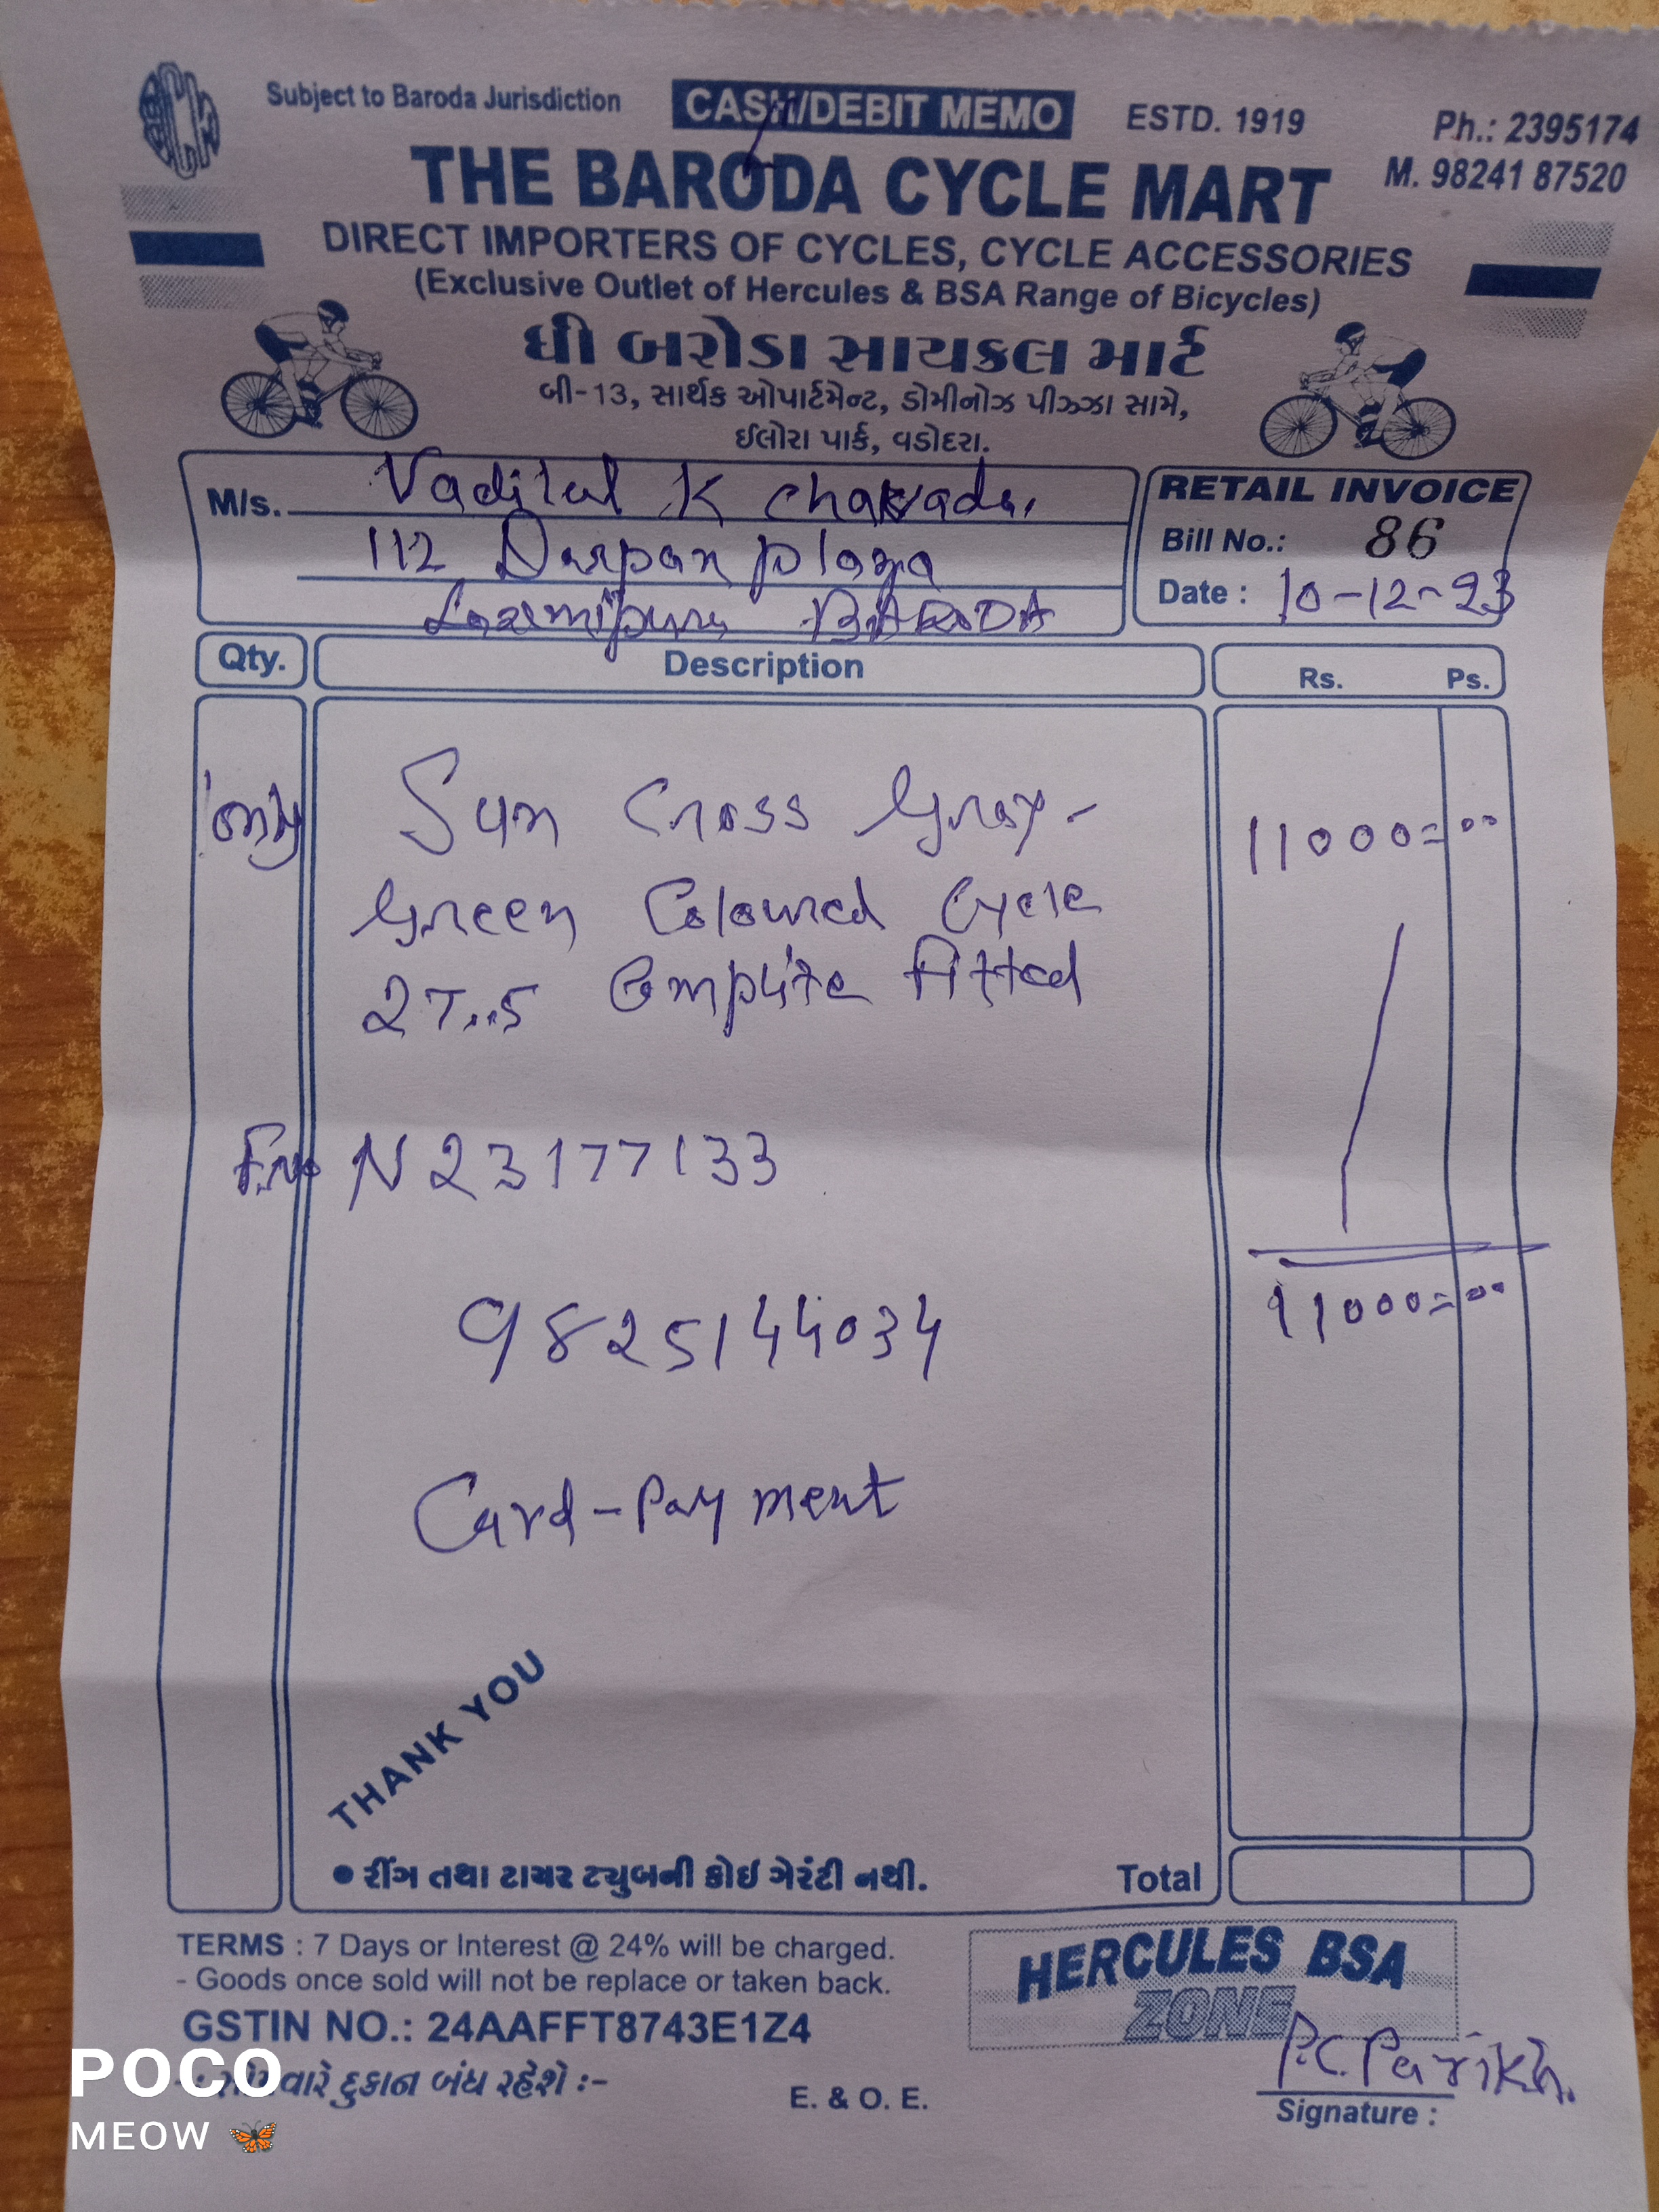 Subject to Baroda Jurisdiction
CASH/DEBIT MEMO
ESTD. 1919
Ph.: 2395174
M. 98241 87520
THE BARODA CYCLE MART
DIRECT IMPORTERS OF CYCLES, CYCLE ACCESSORIES
(Exclusive Outlet of Hercules & BSA Range of Bicycles)
ધી બરોડા સાયકલ માર્ટ
બી-13, સાર્થક એપાર્ટમેન્ટ, ડોમીનોઝ પીઝ્ઝા સામે,
ઈલોરા પાર્ક, વડોદરા.
M/s. Vadilal K Chavada,
112 Darpan plaza
Laxmipura BARODA
RETAIL INVOICE
Bill No.: 86
Date : 10-12-23
Qty. Description Rs. Ps.
Sun Cross Gray- 11000=00
Green Coloured Cycle
27..5 Complite Fitted
F.No N23177133
11000=00
9825144034
Card-Payment
THANK YOU
• રીંગ તથા ટાયર ટ્યુબની કોઈ ગેરંટી નથી. Total
TERMS : 7 Days or Interest @ 24% will be charged.
- Goods once sold will not be replace or taken back.
GSTIN NO.: 24AAFFT8743E1Z4
-: સોમવારે દુકાન બંધ રહેશે :-
E. & O. E.
HERCULES BSA
ZONE
P.C. Parikh.
Signature :
POCO
MEOW 🦋